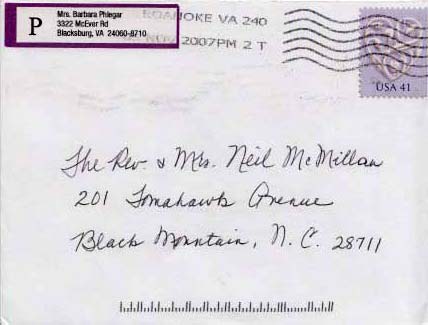 P
Mrs. Barbara Phlegar
3322 McEver Rd
Blacksburg, VA 24060-8710
ROANOKE VA 240
2007PM 2 T
USA 41
The Rev. & Mrs. Neil McMillan
201 Tomahawk Avenue
Black Mountain, N.C. 28711